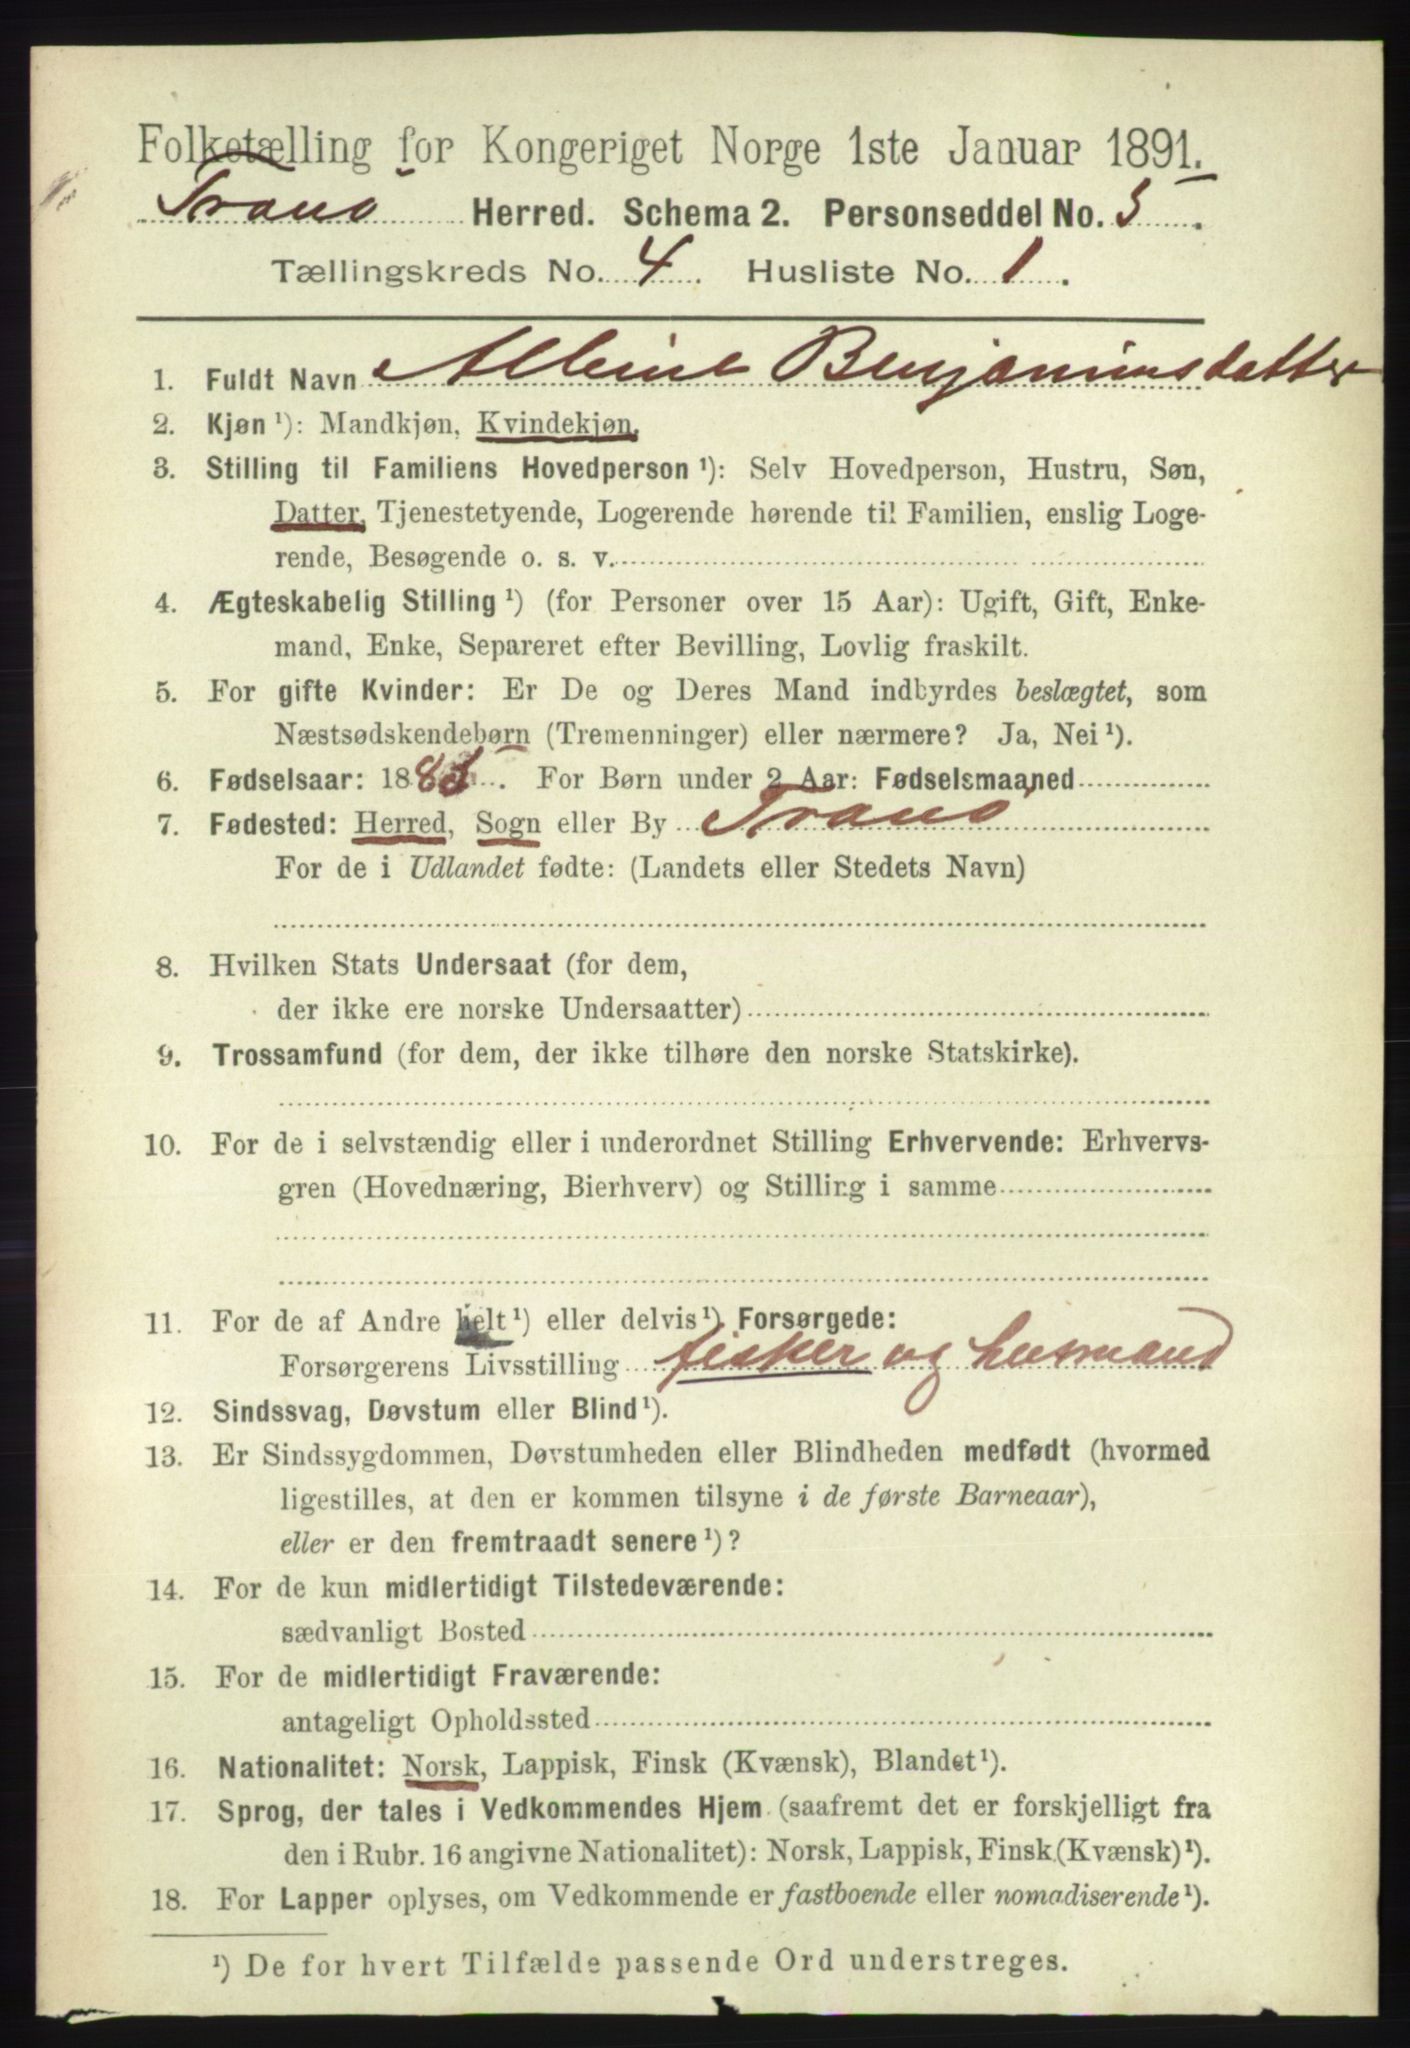 Folketælling for Kongeriget Norge 1ste Januar 1891.
Tranø Herred. Schema 2. Personseddel No. 5.
Tællingskreds No. 4. Husliste No. 1.
1. Fuldt Navn Albine Benjaminsdatter
2. Kjøn ¹): Mandkjøn, Kvindekjøn.
3. Stilling til Familiens Hovedperson ¹): Selv Hovedperson, Hustru, Søn,
Datter, Tjenestetyende, Logerende hørende til Familien, enslig Loge-
rende, Besøgende o. s. v.
4. Ægteskabelig Stilling ¹) (for Personer over 15 Aar): Ugift, Gift, Enke-
mand, Enke, Separeret efter Bevilling, Lovlig fraskilt.
5. For gifte Kvinder: Er De og Deres Mand indbyrdes beslægtet, som
Næstsødskendebørn (Tremenninger) eller nærmere? Ja, Nei ¹).
6. Fødselsaar: 18. For Børn under 2 Aar: Fødselsmaaned
7. Fødested: Herred, Sogn eller By Tranø
For de i Udlandet fødte: (Landets eller Stedets Navn)
8. Hvilken Stats Undersaat (for dem,
der ikke ere norske Undersaatter)
9. Trossamfund (for dem, der ikke tilhøre den norske Statskirke).
10. For de i selvstændig eller i underordnet Stilling Erhvervende: Erhvervs-
gren (Hovednæring, Bierhverv) og Stilling i samme
11. For de af Andre helt ¹) eller delvis ¹) Forsørgede:
Forsørgerens Livsstilling fisker og husmand
12. Sindssvag, Døvstum eller Blind ¹).
13. Er Sindssygdommen, Døvstumheden eller Blindheden medfødt (hvormed
ligestilles, at den er kommen tilsyne i de første Barneaar),
eller er den fremtraadt senere ¹)?
14. For de kun midlertidigt Tilstedeværende:
sædvanligt Bosted
15. For de midlertidigt Fraværende:
antageligt Opholdssted
16. Nationalitet: Norsk, Lappisk, Finsk (Kvænsk), Blandet ¹).
17. Sprog, der tales i Vedkommendes Hjem (saafremt det er forskjelligt fra
den i Rubr. 16 angivne Nationalitet): Norsk, Lappisk, Finsk (Kvænsk) ¹).
18. For Lapper oplyses, om Vedkommende er fastboende eller nomadiserende ¹).
¹) De for hvert Tilfælde passende Ord understreges.